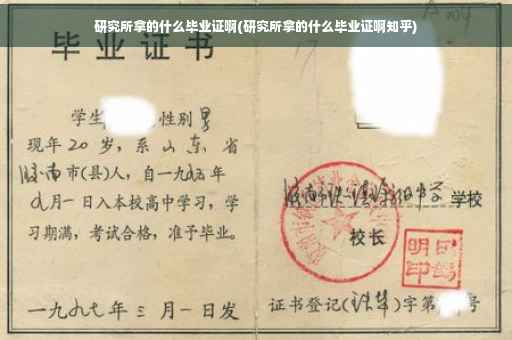 研究所拿的什么毕业证啊(研究所拿的什么毕业证啊知乎)
毕业证书
学生 性别 男
现年 20 岁，系 山东 省
济南 市(县)人，自一九九五年
九月一日入本校高中学习，学
习期满，考试合格，准予毕业。
一九九七年三月一日发
济南 中学 学校
校长
明 印
证书登记( )字第 号